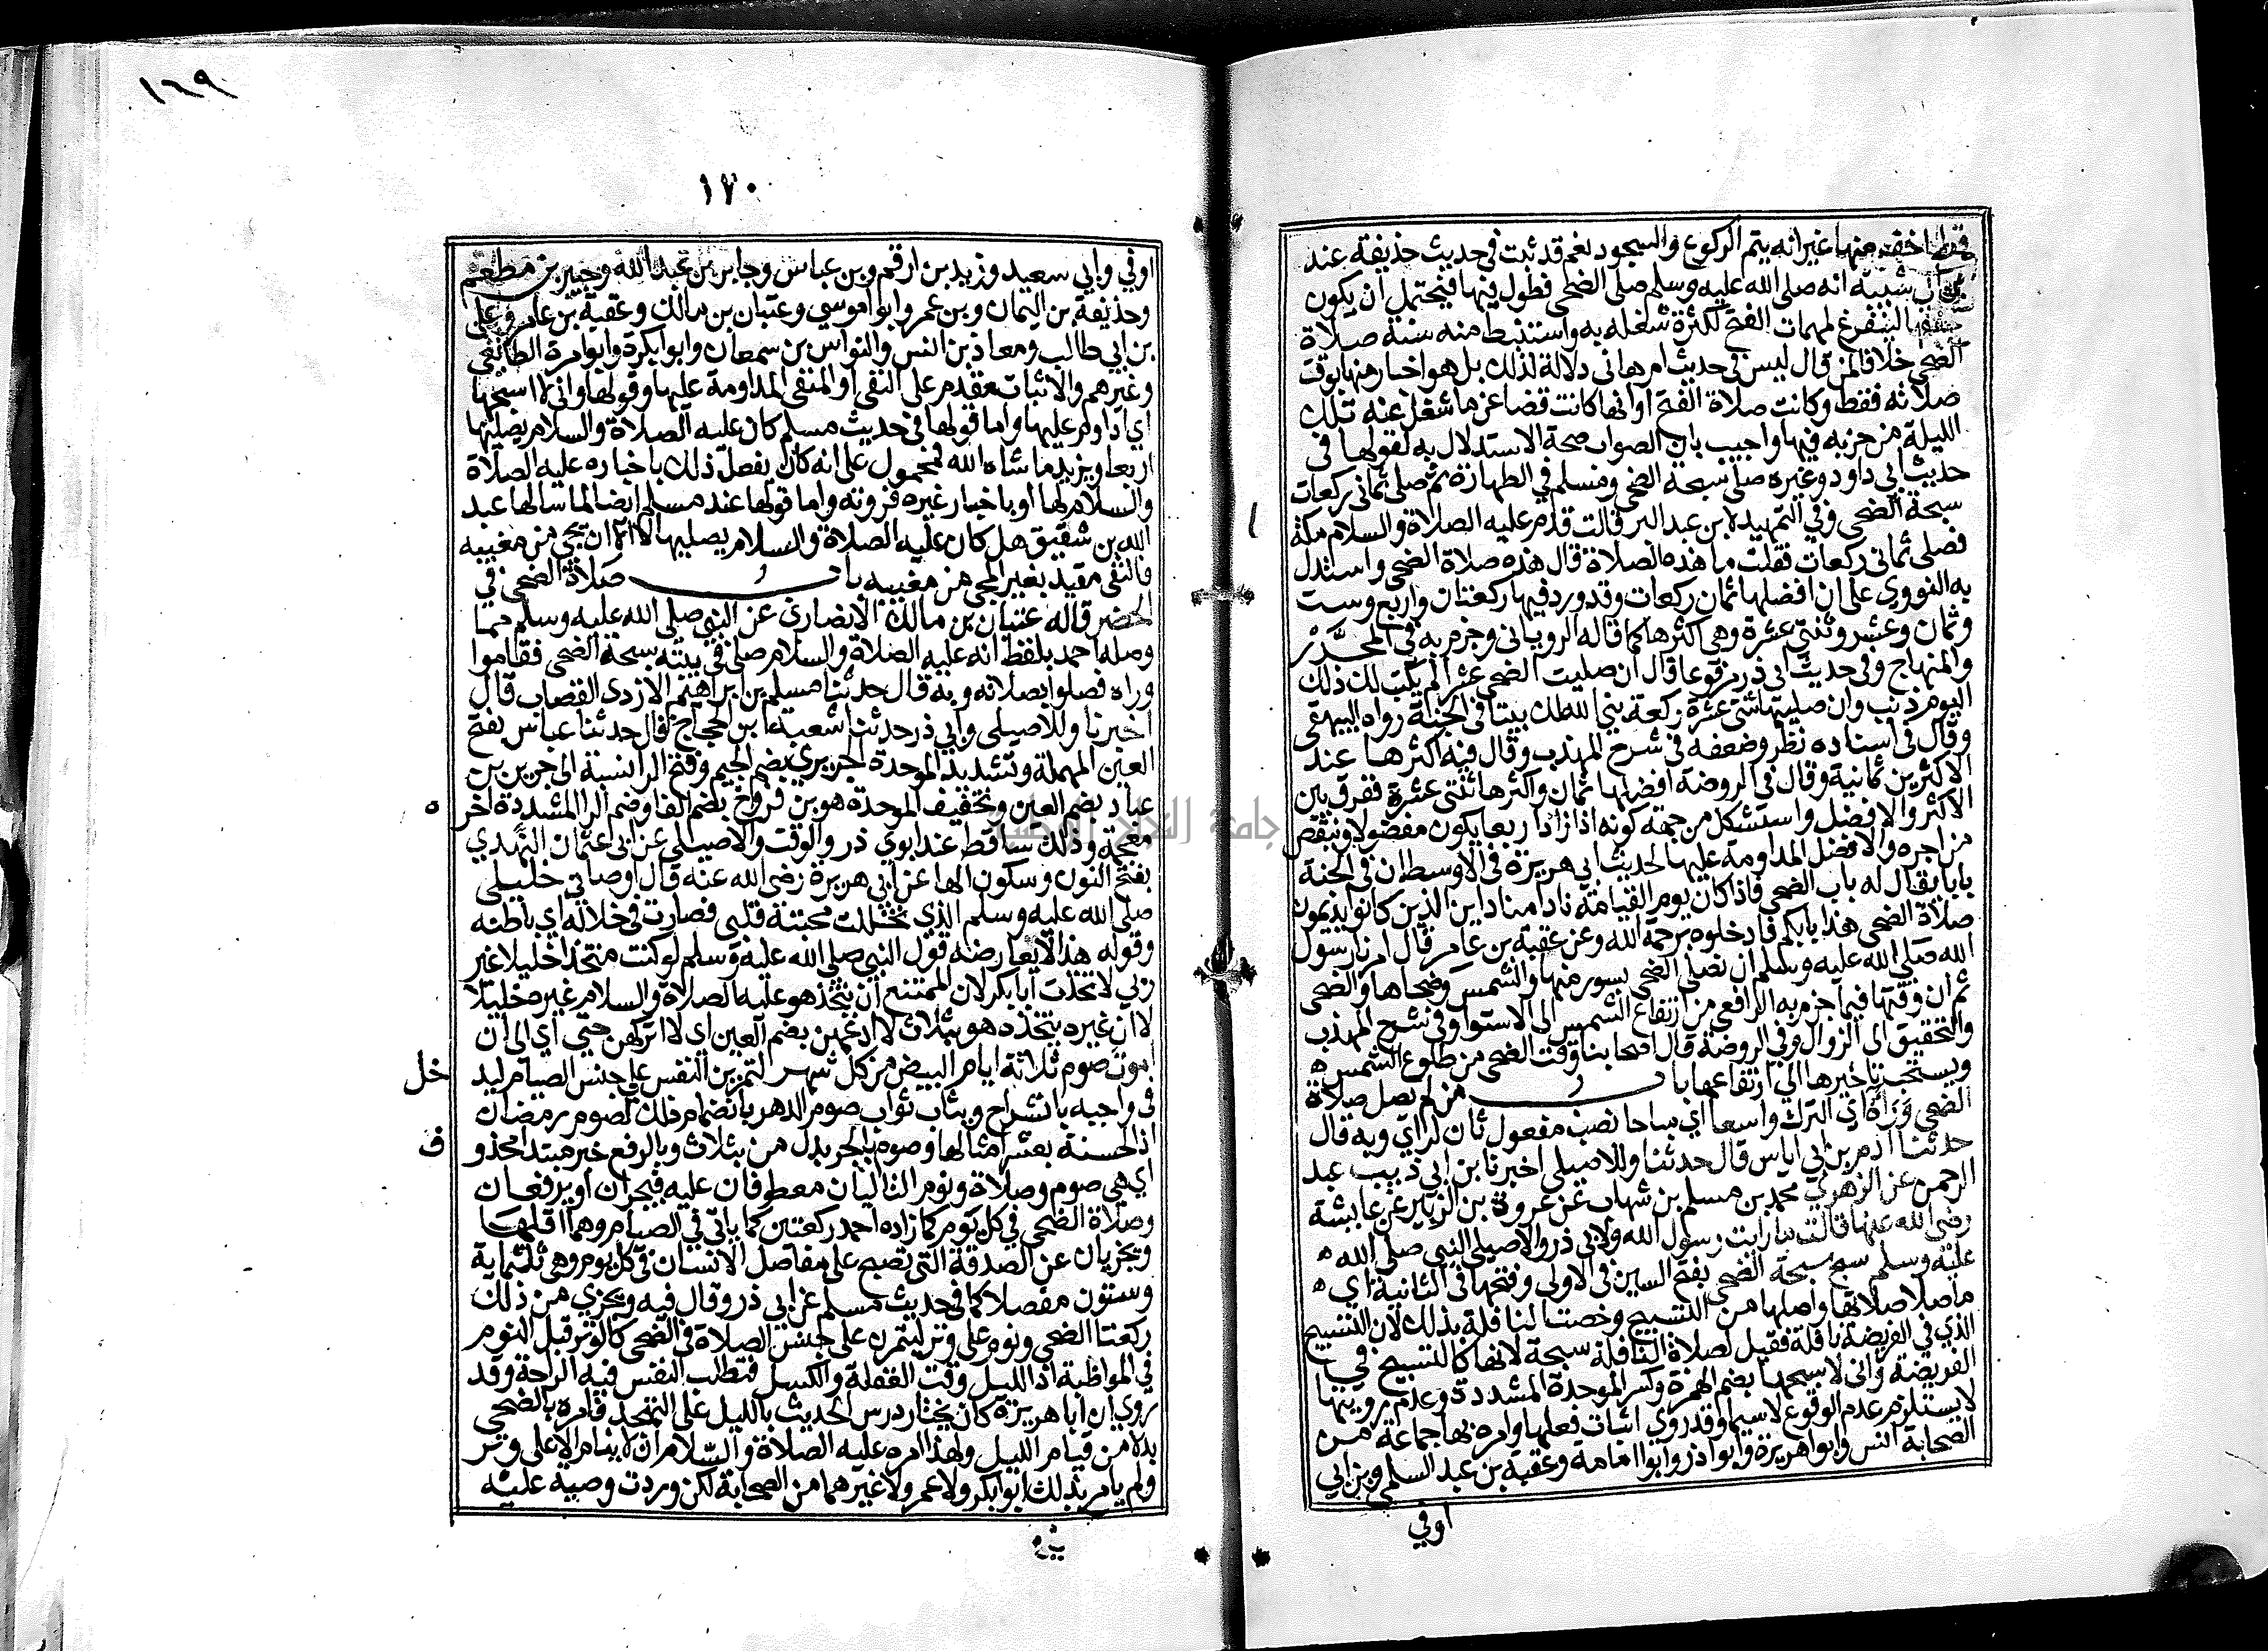 قط اخف منها غير انه يتم الركوع والسجود نعم قد ثبت في حديث حذيفة عند
بن ابي شيبة انه صلى الله عليه وسلم صلى الضحى فطول فيها فيحتمل ان يكون
خففها ليتفرغ لمهمات الفتح لكثرة شغله به واستنبط منه سنة صلاة
الضحى خلافا لمن قال ليس في حديث ام هاني دلالة لذلك بل هو اخبار منها بوقت
صلاته فقط وكانت صلاة الفتح او انها كانت قضا عن ما شغل عنه تلك
الليلة من حزبه فيها واجيب بان الصواب صحة الاستدلال به لقولها في
حديث ابي داود وغيره صلى سبحة الضحى ومسلم في الطهارة ثم صلى ثماني ركعات
سبحة الضحى وفي التمهيد لابن عبد البر قالت قدم عليه الصلاة والسلام مكة
فصلى ثماني ركعات فقلت ما هذه الصلاة قال هذه صلاة الضحى واستدل
به النووي على ان افضلها ثمان ركعات وقد ورد فيها ركعتان واربع وست
وثمان وعشر وثنتي عشرة وهي اكثرها كما قاله الروياني وجزم به في المحرر
والمنهاج وفي حديث ابي ذر مرفوعا قال ان صليت الضحى عشرا لم يكتب لك ذلك
اليوم ذنب وان صليتها اثنتي عشرة ركعة بنى الله لك بيتا في الجنة رواه البيهقي
وقال في اسناده نظر وضعفه في شرح المهذب وقال فيه اكثرها عند
الاكثرين ثمانية وقال في الروضة افضلها ثمان واكثرها ثنتي عشرة ففرق بين
الاكثر والافضل واستشكل من جهة كونه اذا زاد اربعا يكون مفضولا وينقص
من اجره والافضل المداومة عليها لحديث ابي هريرة في الاوسط ان في الجنة
بابا يقال له باب الضحى فاذا كان يوم القيامة نادا مناد اين الذين كانوا يديمون
صلاة الضحى هذا بابكم فادخلوه برحمة الله وعن عقبة بن عامر قال امرنا رسول
الله صلى الله عليه وسلم ان نصلى الضحى بسور منها والشمس وضحاها والضحى
ثم ان وقتها فيما جزم به الرافعي من ارتفاع الشمس الى الاستوا وفي شرح المهذب
والتحقيق اى الزوال وفي الروضة قال اصحابنا وقت الضحى من طلوع الشمس ه
ويستحب تاخيرها الى ارتفاعها باب من لم يصل صلاة
الضحى ورآه اي الترك واسعا اي مباحا نصب مفعول ثان لراي وبه قال
حدثنا آدم بن ابي اياس قال حدثنا وللاصيلى اخبرنا بن ابي ذييب عبد
الرحمن عن الزهري محمد بن مسلم بن شهاب عن عروة بن الزبير عن عايشة
رضى الله عنها قالت ما رايت رسول الله ولابي ذر والاصيلى النبي صلى الله ه
عليه وسلم سبح سبحة الضحى بفتح السين في الاولى وفتحها في الثانية اي ه
ما صلا صلاتها واصلها من التسبيح وخصت النافلة بذلك لان التسبيح
الذي في الفريضة نافلة فقيل لصلاة النافلة سبحة لانها كالتسبيح في
الفريضة وانى لاسبحها بضم الهمزة وكسر الموحدة المشددة وعدم رويتها
لا يستلزم عدم الوقوع لا سيما وقد روي اثبات فعلها وامره بها جماعة من
الصحابة انس وابو هريرة وابوا ذر وابوا امامة وعقبة بن عبد السلمي وبن ابي
اوفي
١٦٩
١٧٠
اوفي وابي سعيد وزيد بن ارقم وبن عباس وجابر بن عبد الله وجبير بن مطعم
وحذيفة بن اليمان وبن عمر وابوا موسي وعتبان بن مالك وعقبة بن عامر وعلى
بن ابي طالب ومعاذ بن انس والنواس بن سمعان وابوا بكرة وابوا مرة الطائفي
وغيرهم والاثبات مقدم على النفى او المنفى المداومة عليها وقولها وانى لاسبحها
اي اداوم عليها واما قولها في حديث مسلم كان عليه الصلاة والسلام يصليها
اربعا ويزيد ما شاء الله فمحمول على انه كان يفعل ذلك باخباره عليه الصلاة
والسلام لها او باخبار غيره فروته واما قولها عند مسلم ايضا لما سالها عبد
الله بن شقيق هل كان عليه الصلاة والسلام يصليها لا الا ان يجي من مغيبه
فالنفى مقيد بغير المجى من مغيبه باب صلاة الضحى في
الحضر قاله عتبان بن مالك الانصارى عن النبي صلى الله عليه وسلم مما
وصله احمد بلفظ انه عليه الصلاة والسلام صلى في بيته سبحة الضحى فقاموا
وراه فصلوا بصلاته وبه قال حدثنا مسلم بن ابراهيم الازدى القصاب قال
اخبرنا وللاصيلى وابي ذر حدثنا شعبة ابن الحجاج قال حدثنا عباس بفتح
العين المهملة وتشديد الموحدة الجريري بضم الجيم وفتح الرا نسبة الى جرير بن
عباد بضم العين وتخفيف الموحدة هو بن فروخ بفتح الفا وضم الرا المشددة اخر ه
معجمة وذلك ساقط عند ابوي ذر والوقت والاصيلى عن ابي عثمان النهدي
بفتح النون وسكون الها عن ابي هريرة رضى الله عنه قال اوصاني خليلى
صلى الله عليه وسلم الذي تخللت محبته قلبي فصارت في خلاله اي باطنه
وقوله هذا لا يعارضه قول النبي صلى الله عليه وسلم لو كنت متخذا خليلا غير
ربي لاتخذت ابا بكر لان الممتنع ان يتخذ هو عليه الصلاة والسلام غيره خليلا
لا ان غيره يتخذه هو بثلاث لا ادعهن بضم العين اى لا اتركهن حتي اي الى ان
اموت صوم ثلاثة ايام البيض من كل شهر لتمرين النفس على جنس الصيام ليدخل
في واجبه بانشراح ويثاب ثواب صوم الدهر بانضمام ذلك لصوم رمضان
اذ الحسنة بعشر امثالها وصوم بالجر بدل من بثلاث وبالرفع خبر مبتدا محذوف
اي هي صوم وصلاة ونوم التاليان معطوفان عليه فيجران او يرفعان
وصلاة الضحى في كل يوم كما زاده احمد ركعتين كما ياتي في الصيام وهما اقلها
ويجزيان عن الصدقة التى تصبح على مفاصل الانسان في كل يوم وهى ثلثماية
وستون مفصلا كما في حديث مسلم عن ابي ذر وقال فيه ويجزي من ذلك
ركعتا الضحى ونوم على وتر ليتمرن على جنس الصلاة في الضحى كالوتر قبل النوم
في المواظبة اذ الليل وقت الغفلة والكسل فتطلب النفس فيه الراحة وقد
روي ان ابا هريرة كان يختار درس الحديث بالليل على التهجد فامره بالضحى
بدلا من قيام الليل ولهذا امره عليه الصلاة والسلام ان لا ينام الا على وتر
ولم يامر بذلك ابوا بكر ولا عمر ولا غيرهما من الصحابة لكن وردت وصيه عليه